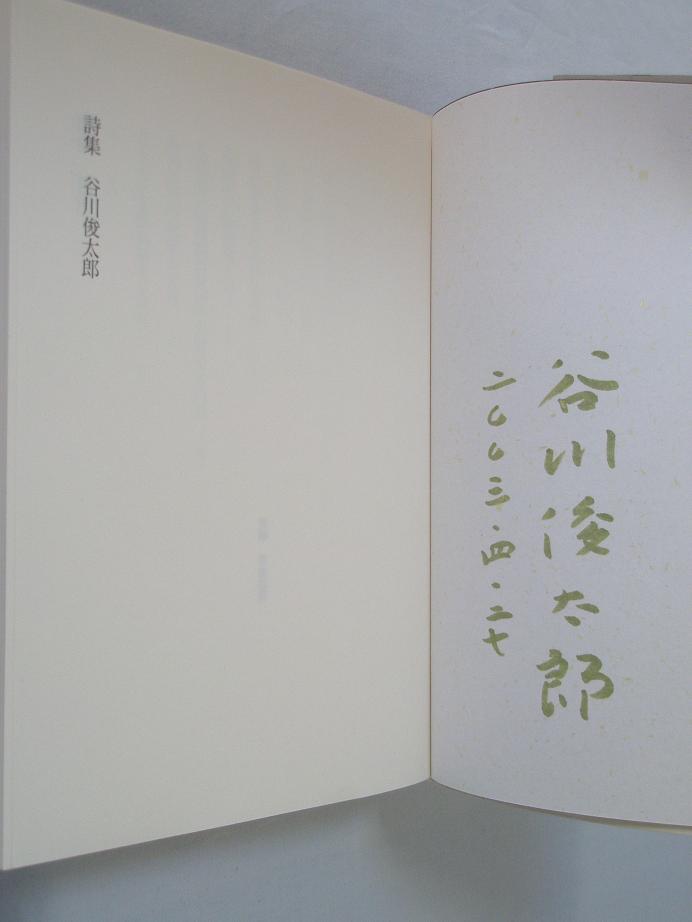 谷川俊太郎
二〇〇三・四・二七
詩集 谷川俊太郎